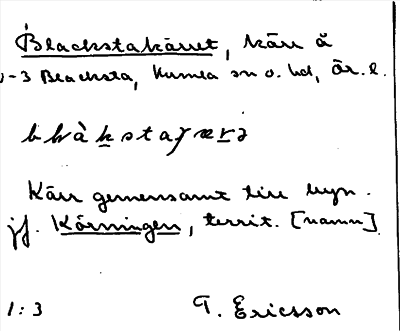 Blackstakärret, kärr å
1-3 Blacksta, Kumla sn o. hd, Ör. l.
Kärr gemensamt till byn.
jf. Körningen, territ. [namn]
1:3 T. Ericsson